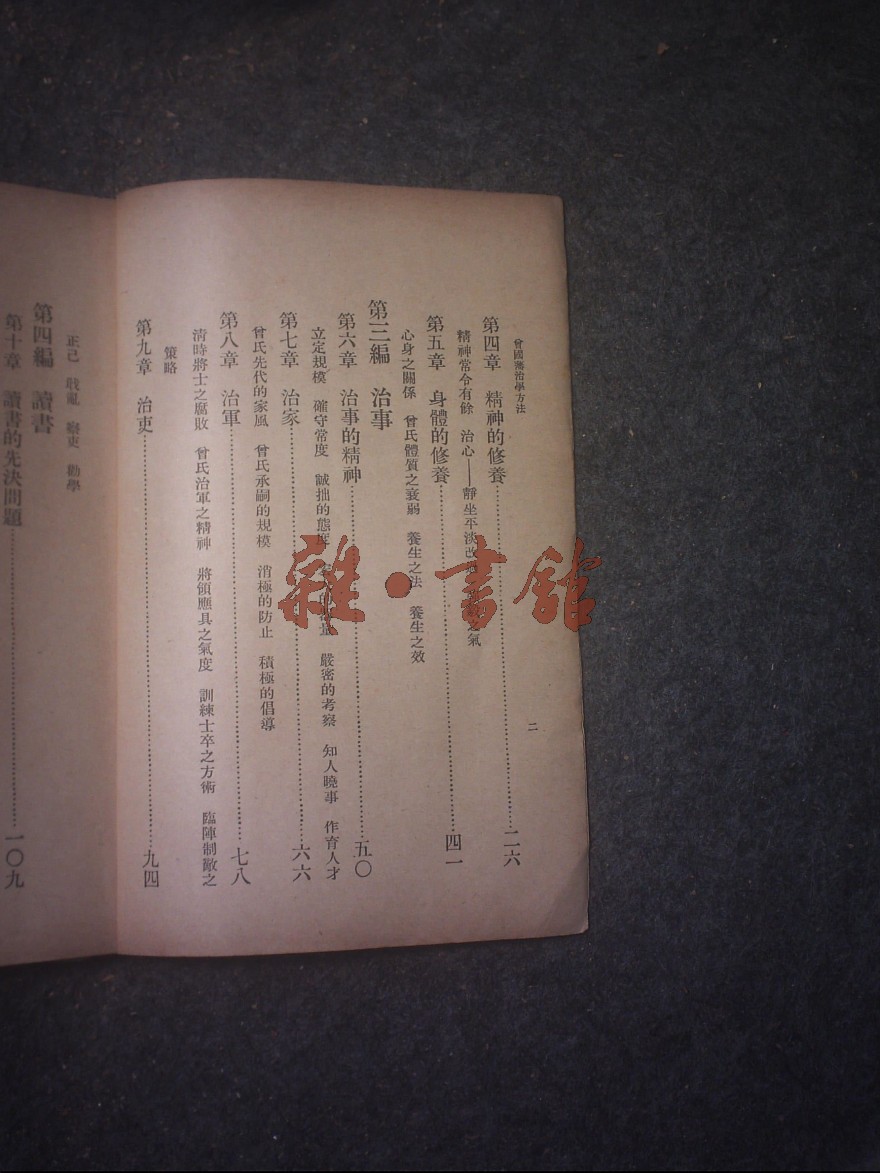 曾國藩治學方法
二
第四章 精神的修養……二六
精神常令有餘 治心——靜坐平淡改過 之氣
第五章 身體的修養……四一
心身之關係 曾氏體質之衰弱 養生之法 養生之效
第三編 治事
第六章 治事的精神……五〇
立定規模 確守常度 誠拙的態度 嚴密的考察 知人曉事 作育人才
第七章 治家……六六
曾氏先代的家風 曾氏承嗣的規模 消極的防止 積極的倡導
第八章 治軍……七八
清時將士之腐敗 曾氏治軍之精神 將領應具之氣度 訓練士卒之方術 臨陣制敵之
策略
第九章 治吏……九四
正己 戢亂 察吏 勸學
第四編 讀書
第十章 讀書的先決問題……一〇九
雜·書館